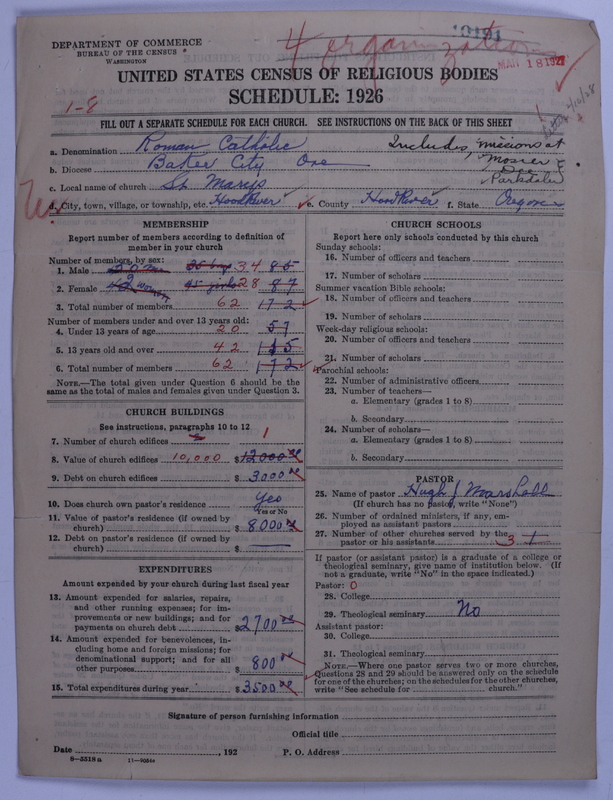 DEPARTMENT OF COMMERCE
BUREAU OF THE CENSUS
WASHINGTON
4 organizations
10191
MAR 18 1927
UNITED STATES CENSUS OF RELIGIOUS BODIES
1-8
SCHEDULE: 1926
FILL OUT A SEPARATE SCHEDULE FOR EACH CHURCH. SEE INSTRUCTIONS ON THE BACK OF THIS SHEET
a. Denomination Roman Catholic
Includes missions at
Mosier &
Dee
Parkdale
b. Diocese Baker City Ore
c. Local name of church St Marys
d. City, town, village, or township, etc. Hood River e. County Hood River f. State Oregon
MEMBERSHIP
Report number of members according to definition of
member in your church
Number of members, by sex:
1. Male 34 85
2. Female 28 87
3. Total number of members 62 172
Number of members under and over 13 years old:
4. Under 13 years of age 20 57
5. 13 years old and over 42 115
6. Total number of members 62 172
NOTE.—The total given under Question 6 should be the
same as the total of males and females given under Question 3.
CHURCH BUILDINGS
See instructions, paragraphs 10 to 12
7. Number of church edifices 1
8. Value of church edifices 10,000 $12000
9. Debt on church edifices $3000
10. Does church own pastor's residence Yes
Yes or No
11. Value of pastor's residence (if owned by
church) $8000
12. Debt on pastor's residence (if owned by
church) $
EXPENDITURES
Amount expended by your church during last fiscal year
13. Amount expended for salaries, repairs,
and other running expenses; for im-
provements or new buildings; and for
payments on church debt $2700
14. Amount expended for benevolences, in-
cluding home and foreign missions; for
denominational support; and for all
other purposes $800
15. Total expenditures during year $3500
CHURCH SCHOOLS
Report here only schools conducted by this church
Sunday schools:
16. Number of officers and teachers
17. Number of scholars
Summer vacation Bible schools:
18. Number of officers and teachers
19. Number of scholars
Week-day religious schools:
20. Number of officers and teachers
21. Number of scholars
Parochial schools:
22. Number of administrative officers
23. Number of teachers—
a. Elementary (grades 1 to 8)
b. Secondary
24. Number of scholars—
a. Elementary (grades 1 to 8)
b. Secondary
PASTOR
25. Name of pastor Hugh J Marshall
(If church has no pastor, write "None")
26. Number of ordained ministers, if any, em-
ployed as assistant pastors
27. Number of other churches served by the
pastor or his assistants 3 1
If pastor (or assistant pastor) is a graduate of a college or
theological seminary, give name of institution below. (If
not a graduate, write "No" in the space indicated.)
Pastor: 0
28. College
29. Theological seminary No
Assistant pastor:
30. College
31. Theological seminary
NOTE.—Where one pastor serves two or more churches,
Questions 28 and 29 should be answered only on the schedule
for one of the churches; on the schedules for the other churches,
write "See schedule for church."
Signature of person furnishing information
Official title
Date , 192 P. O. Address
8—5518a 11—9054e